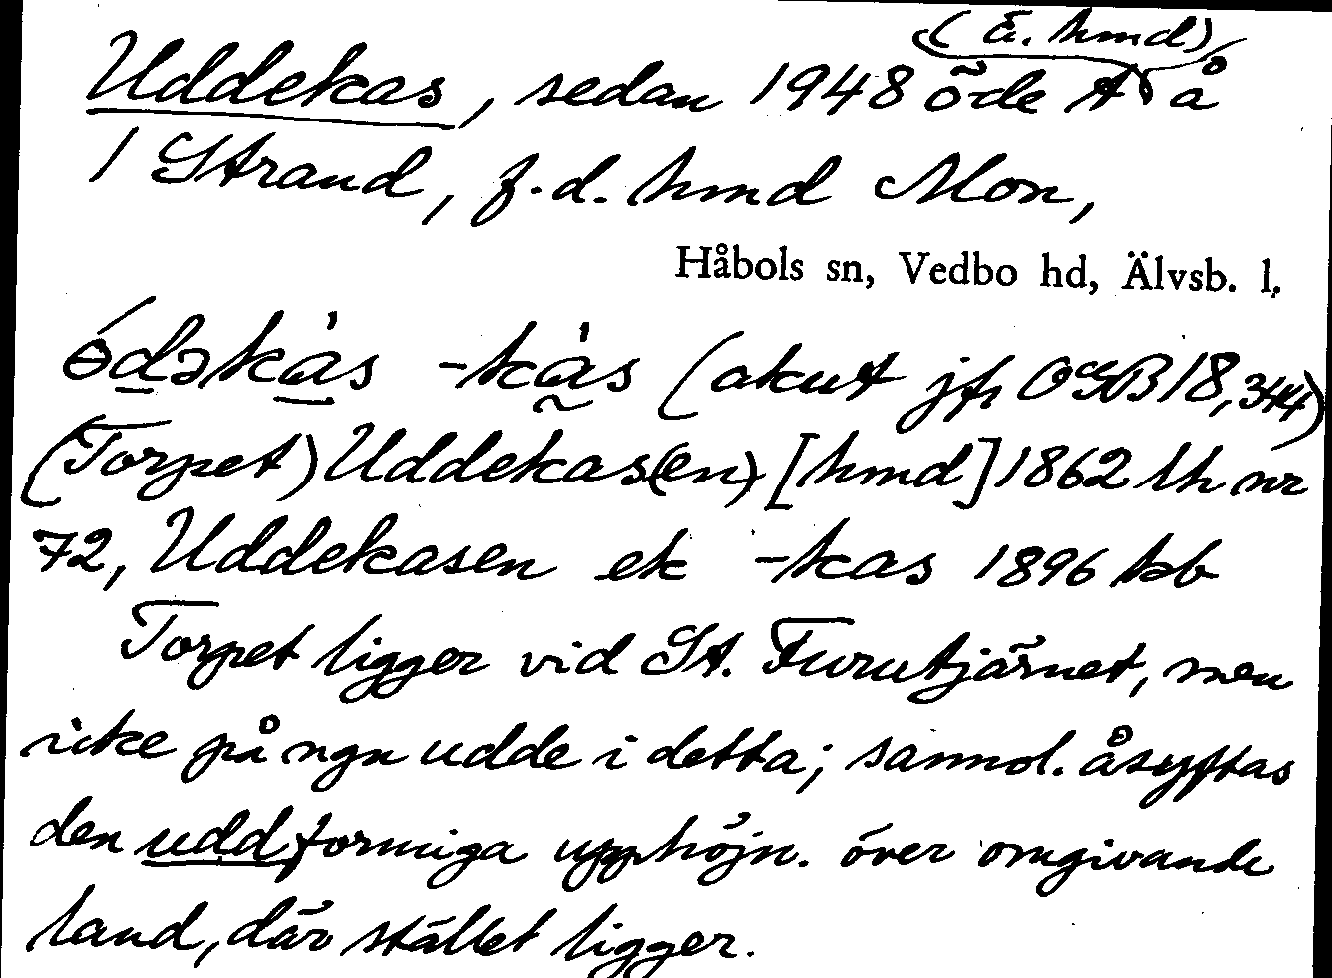 (ä. hmd)
Uddekas, sedan 1948 öde t å
1 Strand, f.d. hmd Mon,
Håbols sn, Vedbo hd, Älvsb. l.
ódəkàs -kàs (akut jfr OGB 18, 344)
(Torpet) Uddekas(en) [hmd] 1862 lh nr
72, Uddekasen ek -kas 1896 kb
Torpet ligger vid St. Furutjärnet, men
icke på ngn udde i detta; sannol. åsyftas
den uddformiga upphöjn. över omgivande
land, där stället ligger.